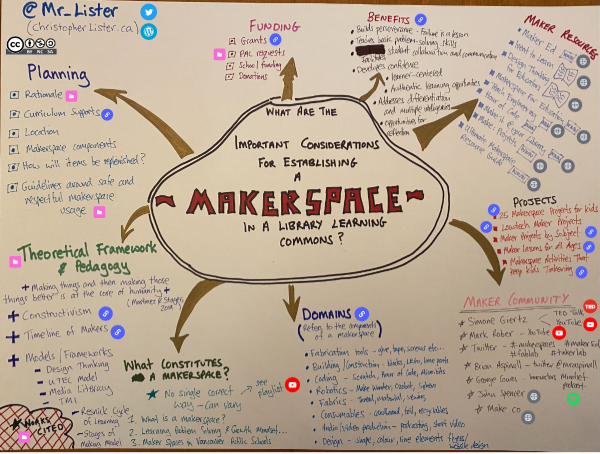 @Mr_Lister
(christopherlister.ca)
CC BY NC SA
Planning
Rationale
Curriculum Supports
Location
Makerspace components
How will items be replenished?
Guidelines around safe and
respectful makerspace
usage
FUNDING
Grants
PAC requests
School funding
Donations
BENEFITS
Builds perseverance - failure is a lesson
Teaches basic problem-solving skills
student collaboration and communication
Facilitates
Develops confidence
learner-centered
Authentic learning opportunities
Addresses differentiation
and multiple
opportunities for
MAKER RESOURCES
Maker Ed
Design Thinking
for Educators
Makerspace for Education
Hour of Code
Maker
Ultimate Makerspace
Resource Guide
WHAT ARE THE
IMPORTANT CONSIDERATIONS
FOR ESTABLISHING
A
~MAKERSPACE~
IN A LIBRARY LEARNING
COMMONS?
PROJECTS
25 Makerspace Projects for kids
Lowtech Maker Projects
Maker Projects by Subject
Maker Lessons for All Ages
Makerspace Activities That
Keep Kids Tinkering
Theoretical Framework
& Pedagogy
+ Making things and then making those
things better is at the core of humanity +
(Martinez & Stager,
+ Constructivism
+ Timeline of Makers
+ Models/Frameworks
- Design Thinking
- UTEC Model
- Media Literacy
- TMI
- Resnick Cycle of
Learning
- Stages of
Making Model
WORKS
CITED
What CONSTITUTES
A MAKERSPACE?
No single correct
way - Can vary
see
playlist
1. What is a makerspace?
2. Learning Problem Solving & Growth Mindset...
3. Maker Spaces in Vancouver Public Schools
DOMAINS
(Refers to the components
of a makerspace)
Fabrication tools - glue, tape, screws etc...
Building/Construction - blocks, LEGO, bone ports
Coding - Scratch, Hour of Code, Micro:bits
Robotics - Make Wonder, Ozobot, Sphero
Fabrics - Thread, material, sewing
Consumables - cardboard, foil, recyclables
Audio/video production - podcasting, short video
Design - shape, colour, line elements
website design
MAKER COMMUNITY
Simone Giertz
TED Talk
YouTube
TED
Mark Rober - YouTube
Twitter - #makerspaces #makered
#fablab #makerlab
Brian Aspinall - twitter @mraspinall
George Couros - Innovator's Mindset
podcast
Spencer
Make co